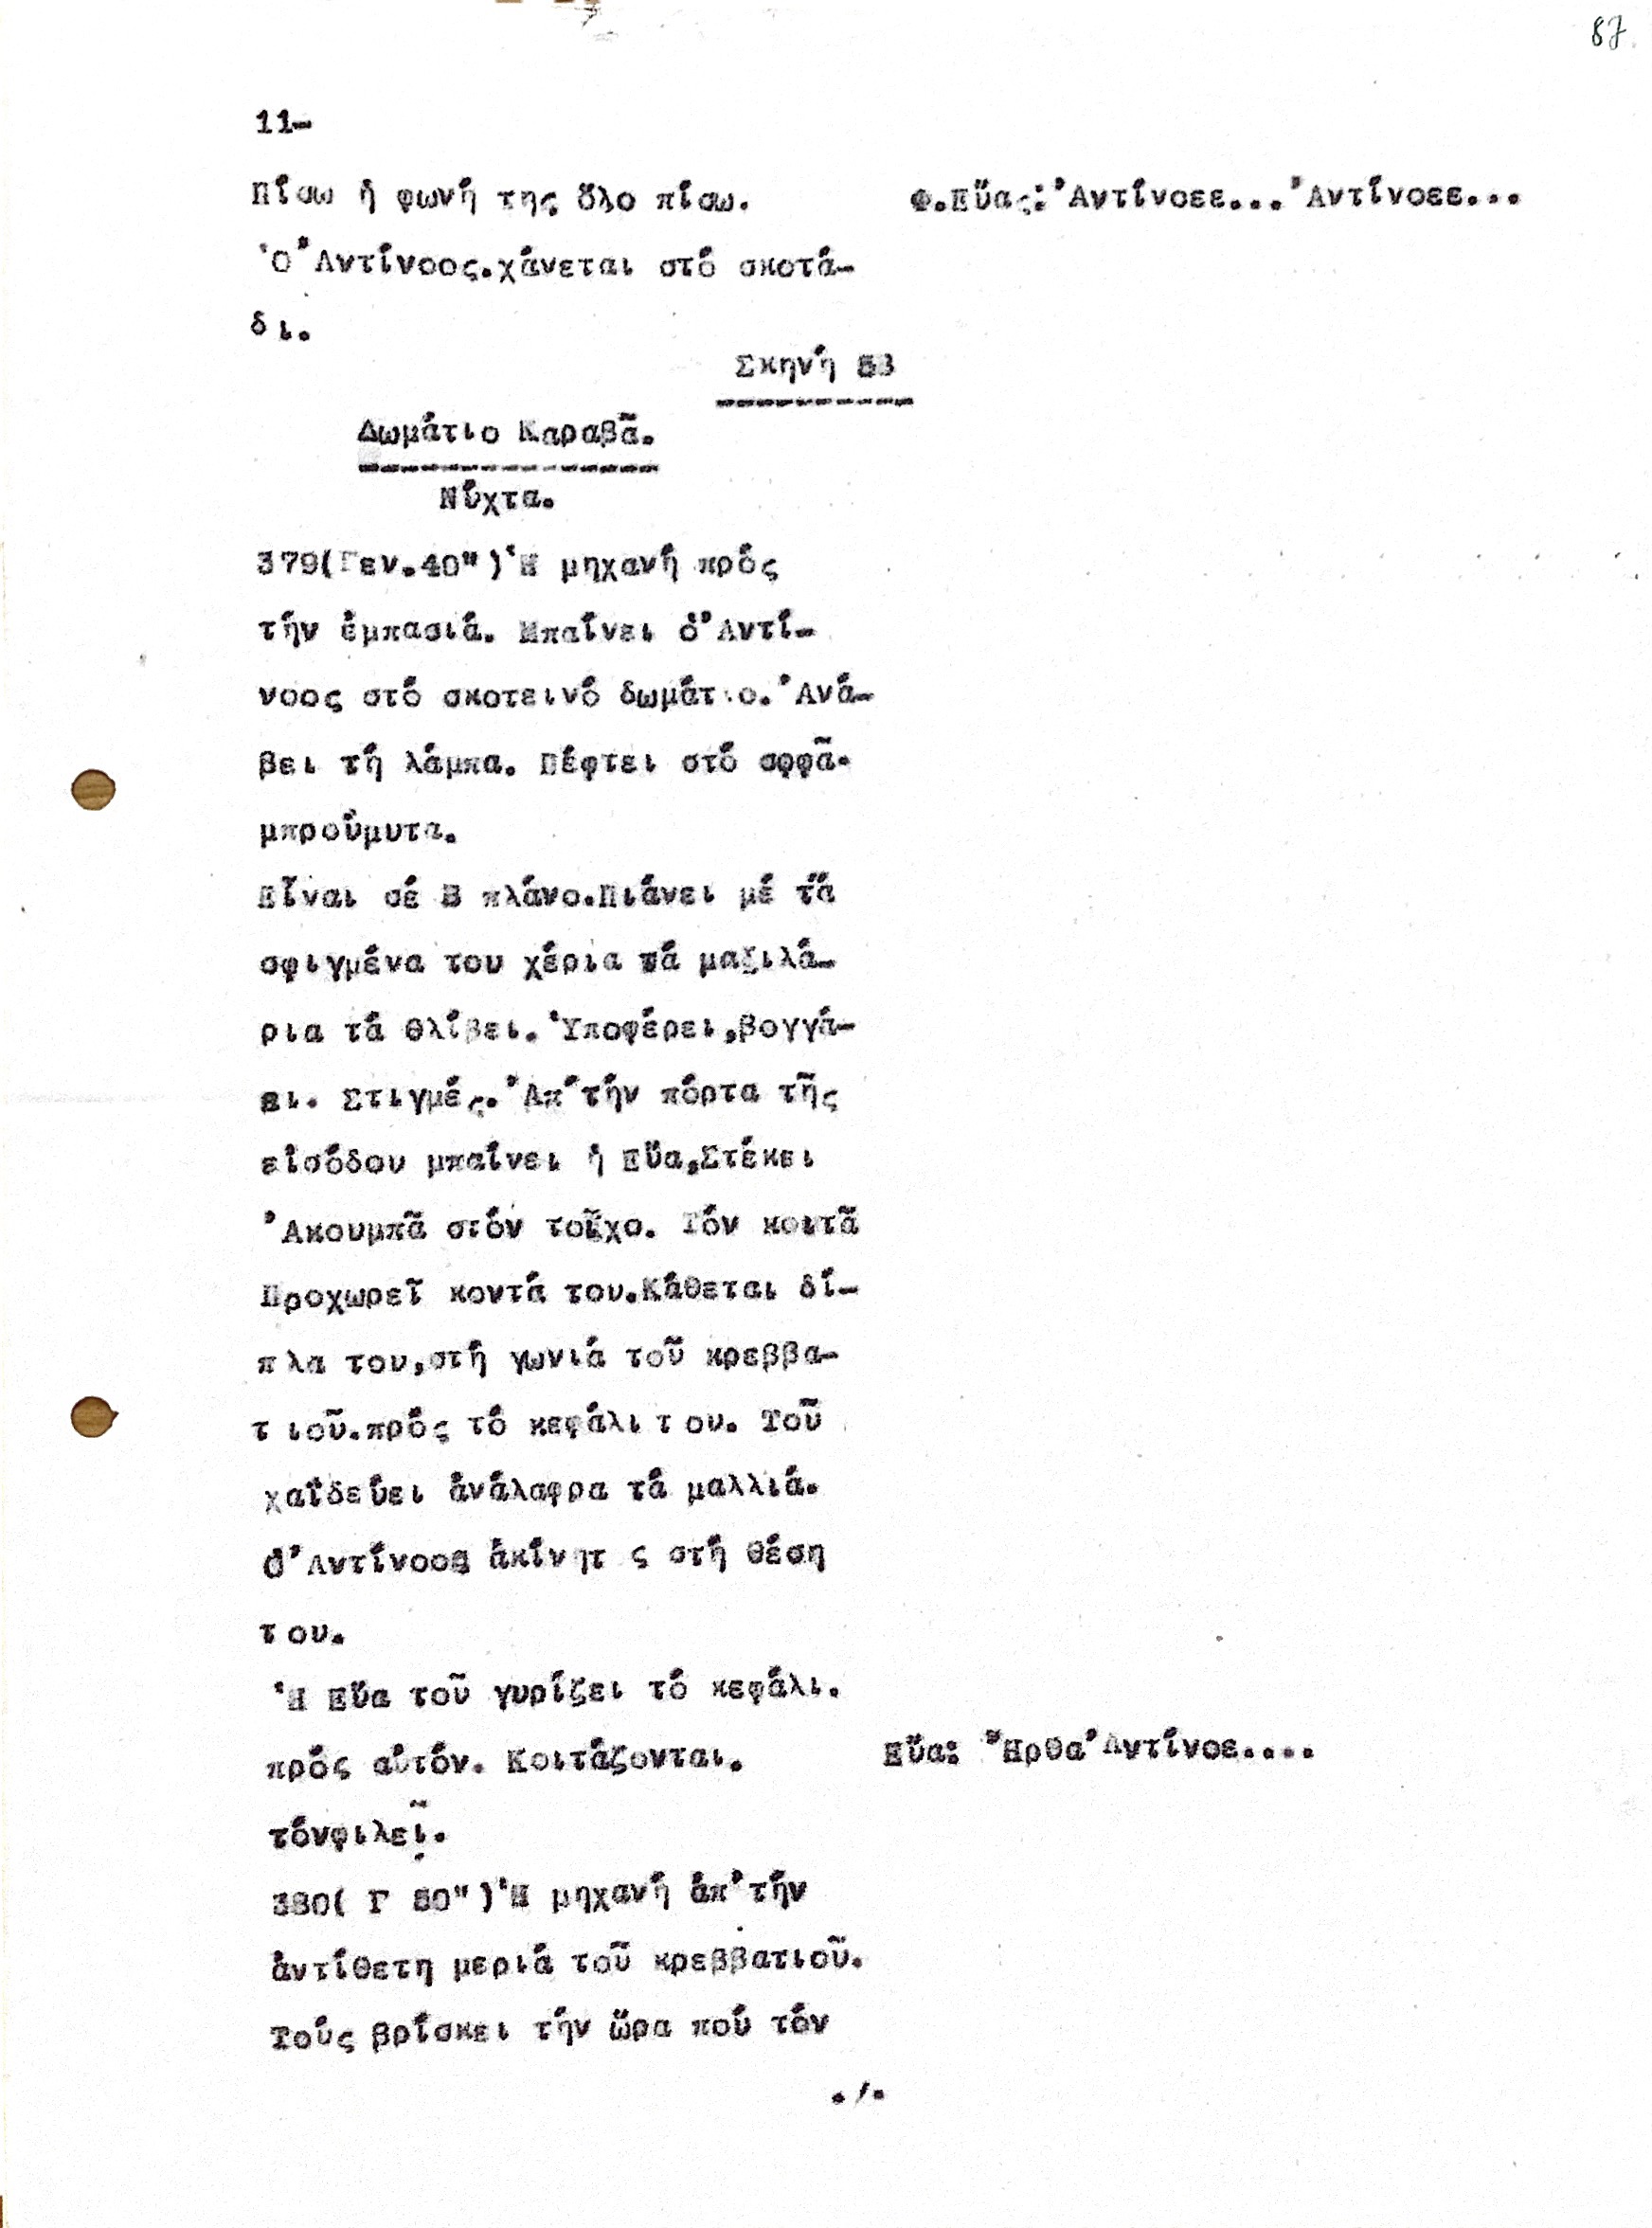 87.
11-
Πίσω ἡ φωνή της ὅλο πίσω.
Φ.Εὔας: Ἀντίνοεε... Ἀντίνοεε...
Ὁ Ἀντίνοος.χάνεται στό σκοτά-
δι.
Σκηνή 53
Δωμάτιο Καραβᾶ.
Νύχτα.
379(Γεν.40") Ἡ μηχανή πρός
τήν ἐμπασιά. Μπαίνει ὁ Ἀντί-
νοος στό σκοτεινό δωμάτιο. Ἀνά-
βει τή λάμπα. Πέφτει στό σοφᾶ.
μπρούμυτα.
Εἶναι σέ Β πλάνο.Πιάνει μέ τά
σφιγμένα του χέρια τά μαξιλά-
ρια τά θλίβει. Ὑποφέρει,βογγά-
ει. Στιγμές. Ἀπ' τήν πόρτα τῆς
εἰσόδου μπαίνει ἡ Εὔα,Στέκει
Ἀκουμπᾶ στόν τοῖχο. Τόν κοιτᾶ
Προχωρεῖ κοντά του.Κάθεται δί-
πλα του,στή γωνιά τοῦ κρεββα-
τ ιοῦ.πρός τό κεφάλι τ ου. Τοῦ
χαϊδεύει ἀνάλαφρα τά μαλλιά.
ὁ Ἀντίνοος ἀκίνητ ς στή θέση
τ ου.
Ἡ Εὔα τοῦ γυρίζει τό κεφάλι.
πρός αὐτόν. Κοιτάζονται.
Εὔα: Ἦρθα Ἀντίνοε....
τόνφιλεῖ.
380( Γ 50") Ἡ μηχανή ἀπ' τήν
ἀντίθετη μεριά τοῦ κρεββατιοῦ.
Τούς βρίσκει τήν ὥρα πού τόν
./.